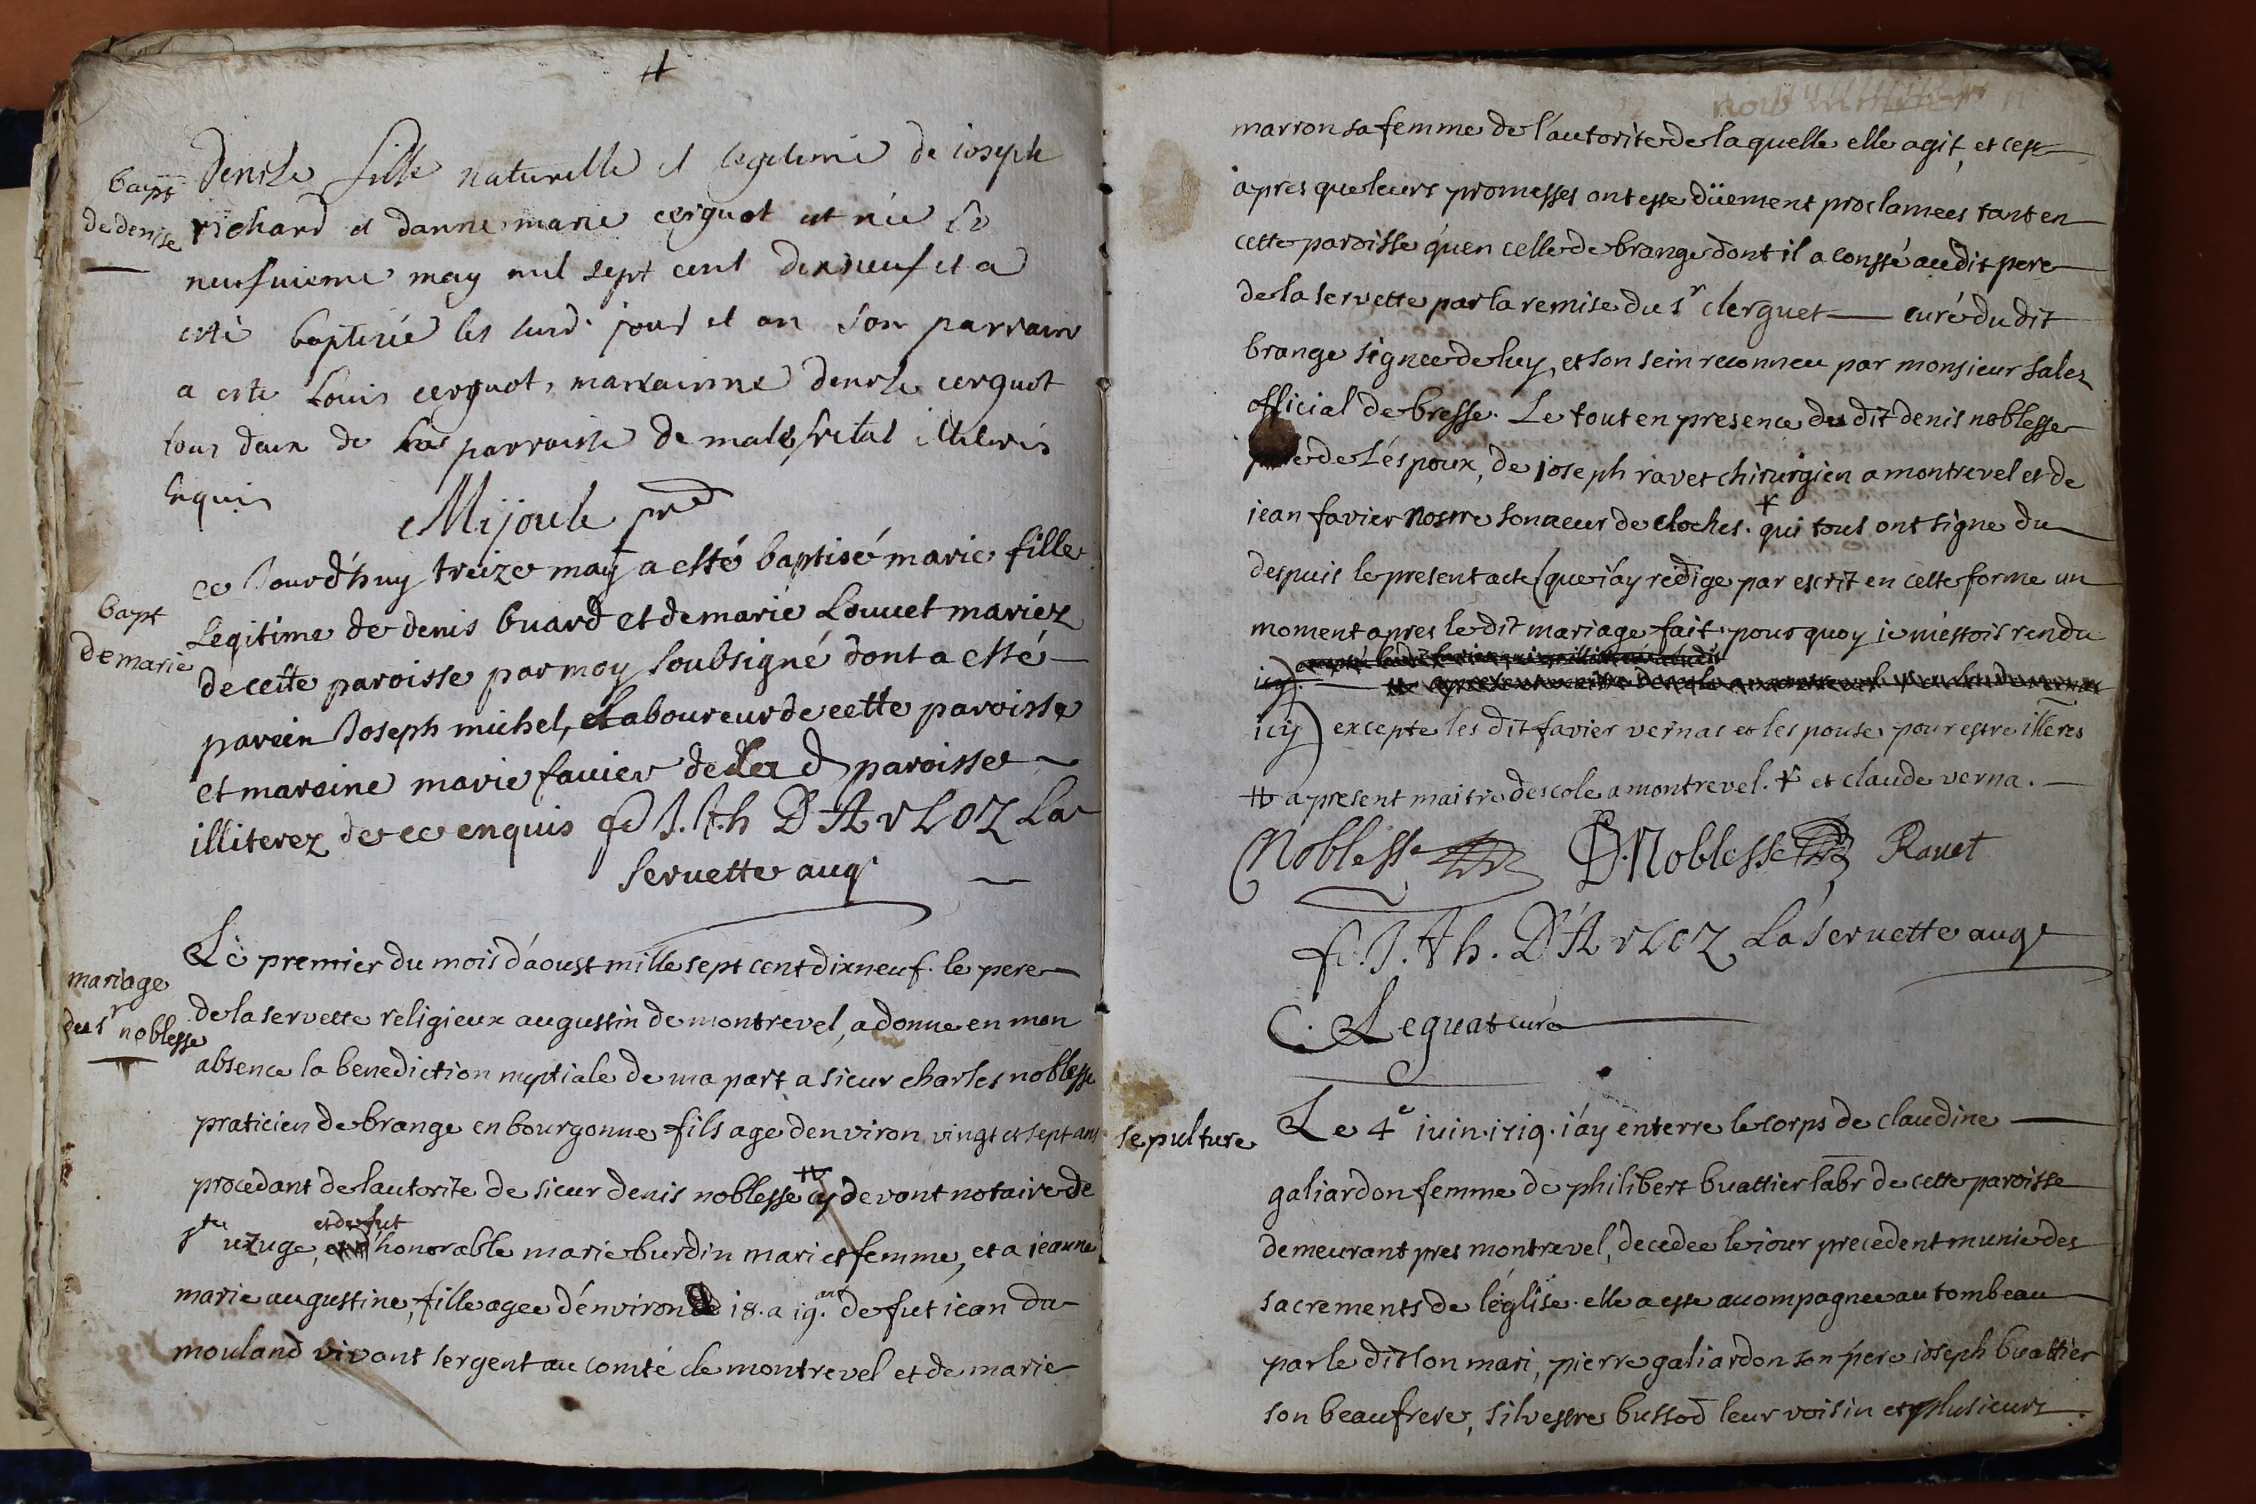 bapt
de denise
Denise fille naturelle et legitime de ioseph
richard et danne marie cerguot est née le
neufuieme may mil sept cent dixneuf et a
esté baptisée les susd. jour et an son parrain
a esté Louis cerguot, marrainne denise cerguot
tous deux de la parroisse de illiterés
enquis
Mijoule
bapt
de marie
ce Jourd'huy treize may a esté baptisé marie fille
Legitime de denis buard et de marie Louuet mariez
de cette paroisse par moy soubsigné dont a esté
parein Joseph michel, Laboureur de cette paroisse
et mareine marie fauier de la d paroisse
illiterez de ce enquis f J. th D'ARLOZ La
seruette aug
mariage
du sr noblesse
Le premier du mois d'aoust mille sept cent dixneuf. le pere
de la servette religieux augustin de montrevel, a donne en mon
absence la benediction nuptiale de ma part a sieur charles noblesse
praticien de brange en bourgonne fils age denviron vingt et sept ans
procedant de lautorite de sieur denis noblesse # cy devant notaire de
ste uzuge, et de fut honorable marie burdin mari et femme, et a jeanne
marie augustine, fille agee d'environ 18. a 19. ans de fut jean du
mouland vivant sergent au comté de montrevel et de marie
marron sa femme de l'autorite de laquelle elle agit, et cest
apres que leurs promesses ont este düement proclamees tant en
cette paroisse qu'en celle de brange dont il a consté audit pere
de la servette par la remise du sr clerguet curé du dit
brange signee de luy, et son sein reconneu par monsieur sales
official de bresse. Le tout en presence du dit denis noblesse
pere de l'espoux, de joseph ravet chirurgien a montrevel et de
jean favier nostre sonneur de cloches. + qui tous ont signe du
despuis le present acte (que j'ay redige par escrit en cette forme un
moment apres le dit mariage fait. pour quoy je m'estois rendu
icy) excepte les dit favier vernas et lespouse pour estre illeres
# a present maitre descole a montrevel. + et claude verna.
Noblesse D. Noblesse Rauet
f. J. th. D'ARLOZ La seruette aug
C. Leguat curé
sepulture
Le 4e iuin. 1719. i'ay enterre le corps de claudine
galiardon femme de philibert buattier labr de cette paroisse
demeurant pres montrevel, decedee le jour precedent munie des
sacrements de l'église. elle a este accompagnee au tombeau
par le dit son mari, pierre galiardon son pere joseph buattier
son beaufrere, silvestre bussod leur voisin et plusieurs